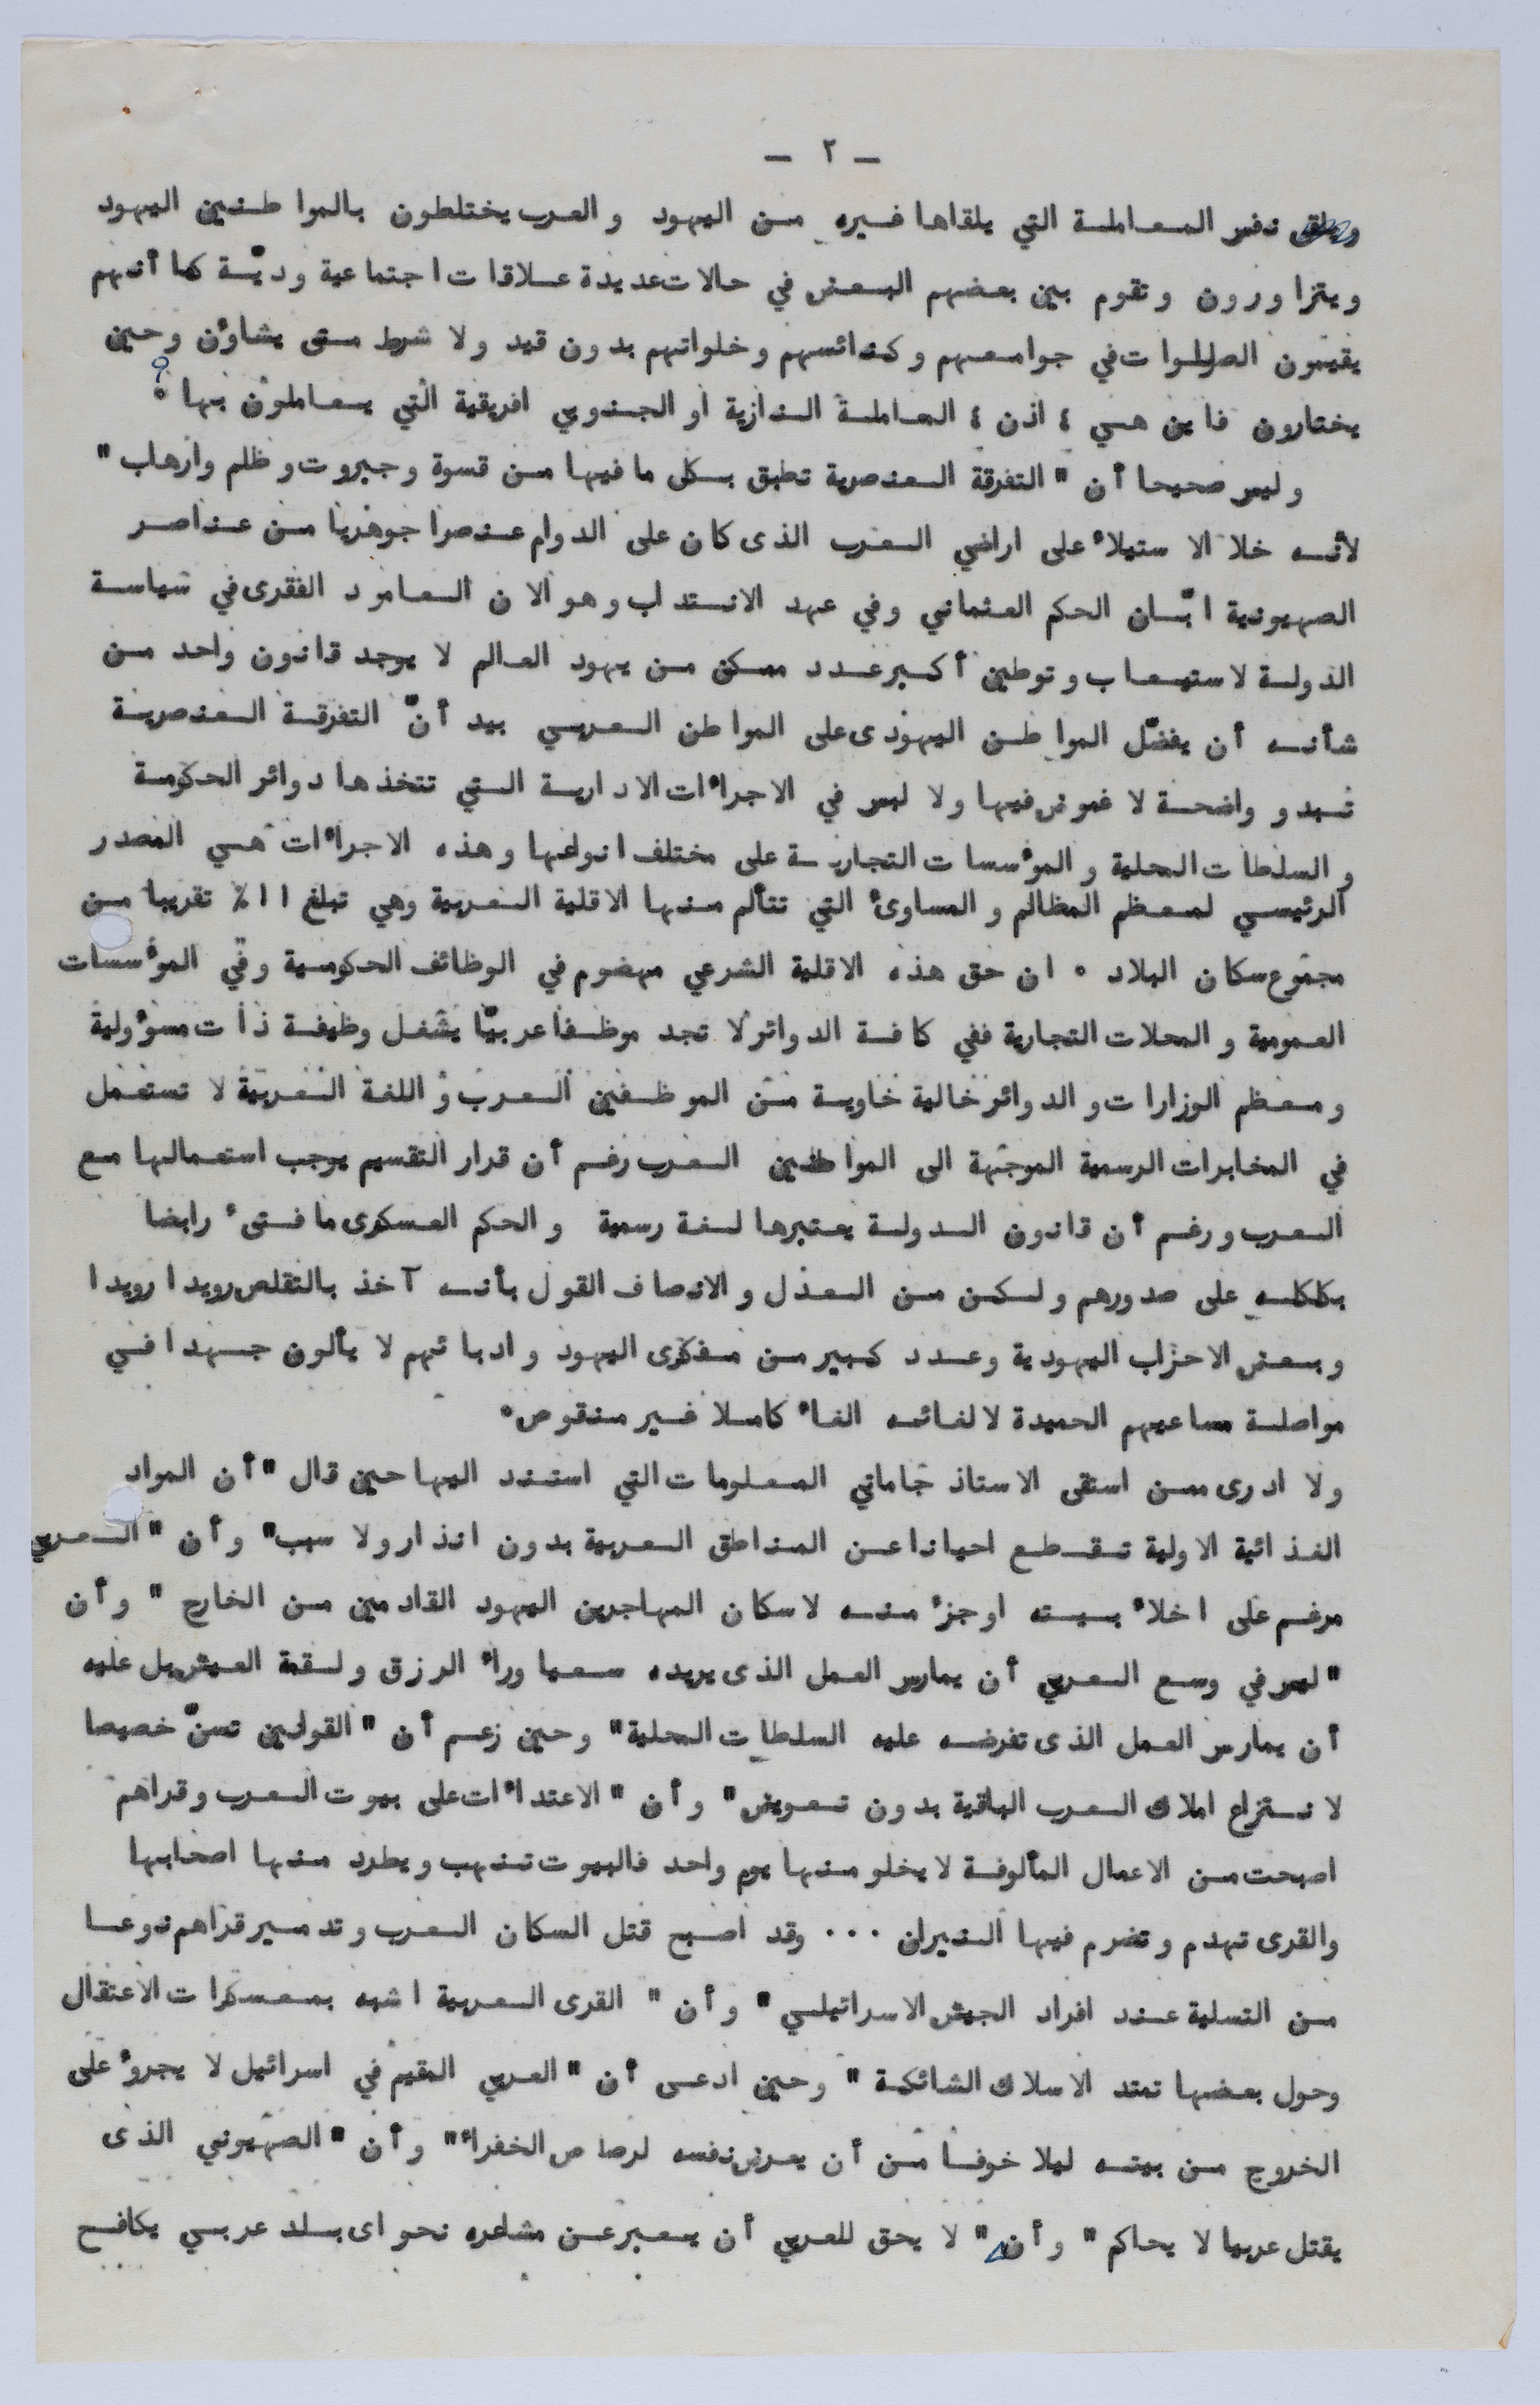 — ٢ —
ويلقى نفس المعاملة التي يلقاها غيره من اليهود والعرب يختلطون بالمواطنين اليهود
ويتزاورون وتقوم بين بعضهم البعض في حالات عديدة علاقات اجتماعية وديّة كما أنهم
يقيمون الصلوات في جوامعهم وكنائسهم وخلواتهم بدون قيد ولا شرط متى يشاؤن وحين
يختارون فأين هي ، اذن ، المعاملة النازية او الجنوبي افريقية التي يعاملون بها ؟
وليس صحيحا أن " التفرقة العنصرية تطبق بكل ما فيها من قسوة وجبروت وظلم وارهاب "
لأنه خلا الاستيلاء على اراضي العرب الذى كان على الدوام عنصرا جوهريا من عناصر
الصهيونية ابّان الحكم العثماني وفي عهد الانتداب وهو الان العامود الفقرى في سياسة
الدولة لاستيعاب وتوطين أكبر عدد ممكن من يهود العالم لا يوجد قانون واحد من
شأنه أن يفضّل المواطن اليهودى على المواطن العربي بيد أنّ التفرقة العنصرية
تبدو واضحة لا غموض فيها ولا لبس في الاجراءات الادارية التي تتخذها دوائر الحكومة
والسلطات المحلية والمؤسسات التجارية على مختلف انواعها وهذه الاجراءات هي المصدر
الرئيسي لمعظم المظالم والمساوئ التي تتألم منها الاقلية العربية وهي تبلغ ١١ ٪ تقريبا من
مجموع سكان البلاد . ان حق هذه الاقلية الشرعي مهضوم في الوظائف الحكومية وفي المؤسسات
العمومية والمحلات التجارية ففي كافة الدوائر لا تجد موظفا عربيّا يشغل وظيفة ذات مسؤولية
ومعظم الوزارات والدوائر خالية خاوية من الموظفين العرب واللغة العربية لا تستعمل
في المخابرات الرسمية الموجّهة الى المواطنين العرب رغم أن قرار التقسيم يوجب استعمالها مع
العرب ورغم أن قانون الدولة يعتبرها لغة رسمية والحكم العسكرى ما فتئ رابضا
بكلكله على صدورهم ولكن من العدل والانصاف القول بأنه آخذ بالتقلص رويدا رويدا
وبعض الاحزاب اليهودية وعدد كبير من مفكرى اليهود وادبائهم لا يألون جهدا في
مواصلة مساعيهم الحميدة لالغائه الغاء كاملا غير منقوص .
ولا ادرى ممن استقى الاستاذ جاماتي المعلومات التي استند اليها حين قال " أن المواد
الغذائية الاولية تقطع احيانا عن المناطق العربية بدون انذار ولا سبب " وأن " العربي
مرغم على اخلاء بيته او جزء منه لاسكان المهاجرين اليهود القادمين من الخارج " وأن
" ليس في وسع العربي أن يمارس العمل الذى يريده سعيا وراء الرزق ولقمة العيش بل عليه
أن يمارس العمل الذى تفرضه عليه السلطات المحلية " وحين زعم أن " القوانين تسنّ خصيصا
لانتزاع املاك العرب الباقية بدون تعويض " وأن " الاعتداءات على بيوت العرب وقراهم
اصبحت من الاعمال المألوفة لا يخلو منها يوم واحد فالبيوت تنهب ويطرد منها اصحابها
والقرى تهدم وتضرم فيها النيران ... وقد اصبح قتل السكان العرب وتدمير قراهم نوعا
من التسلية عند افراد الجيش الاسرائيلي " وأن " القرى العربية اشبه بمعسكرات الاعتقال
وحول بعضها تمتد الاسلاك الشائكة " وحين ادعى أن " العربي المقيم في اسرائيل لا يجرؤ على
الخروج من بيته ليلا خوفا من أن يعرض نفسه لرصاص الخفراء " وأن " الصهيوني الذى
يقتل عربيا لا يحاكم " وأن " لا يحق للعربي أن يعبر عن مشاعره نحو اى بلد عربي يكافح